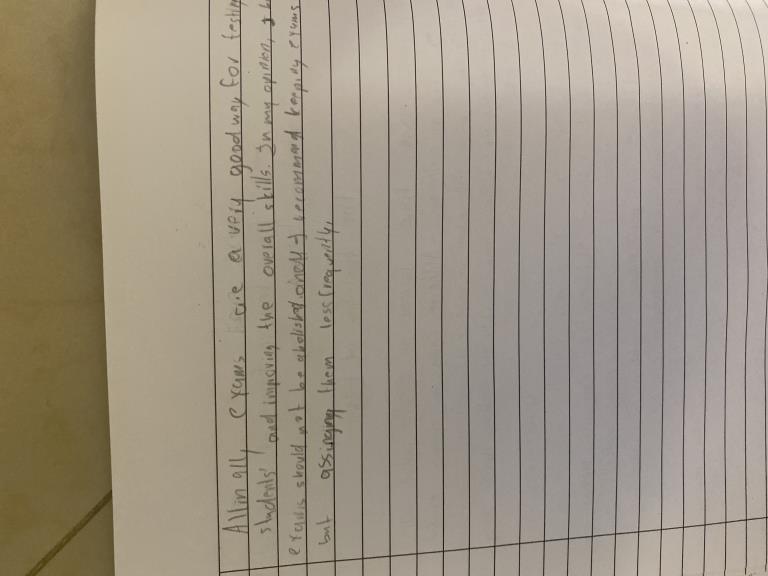 All in all, exams are a very good way for testing
students' and improving the overall skills. In my opinion,
exams should not be abolished. I recommend keeping exams
but assinging them less frequently.